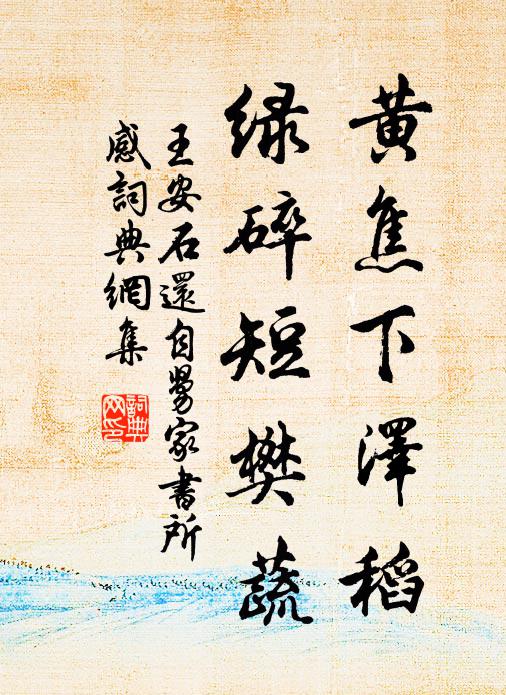 黄焦下澤稻
绿碎短樊蔬
王安石還自舅家書所
感詞典網集
詞典
网印